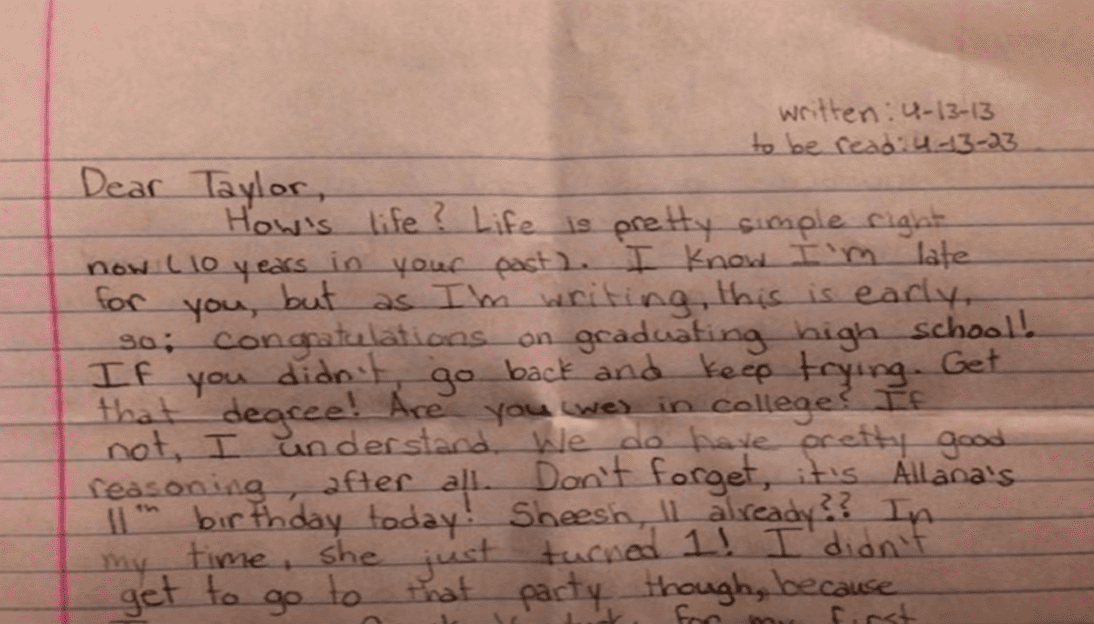 written: 4-13-13
to be read: 4-13-23
Dear Taylor,
How's life? Life is pretty simple right
now (10 years in your past). I know I'm late
for you, but as I'm writing, this is early,
so; congratulations on graduating high school!
If you didn't, go back and keep trying. Get
that degree! Are you (we) in college? If
not, I understand. We do have pretty good
reasoning, after all. Don't forget, it's Allana's
11th birthday today! Sheesh, 11 already?? In
my time, she just turned 1! I didn't
get to go to that party though, because
for my first